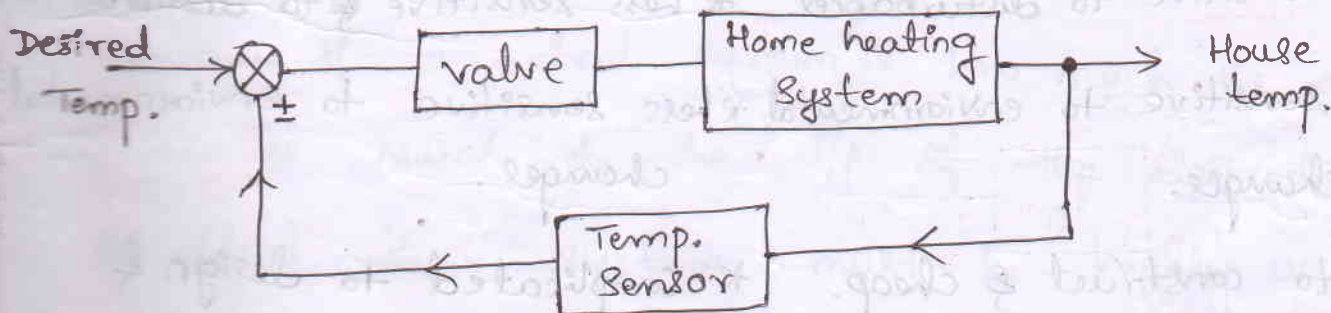 Desired
Temp.
±
valve
Home heating
System
House
temp.
Temp.
Sensor